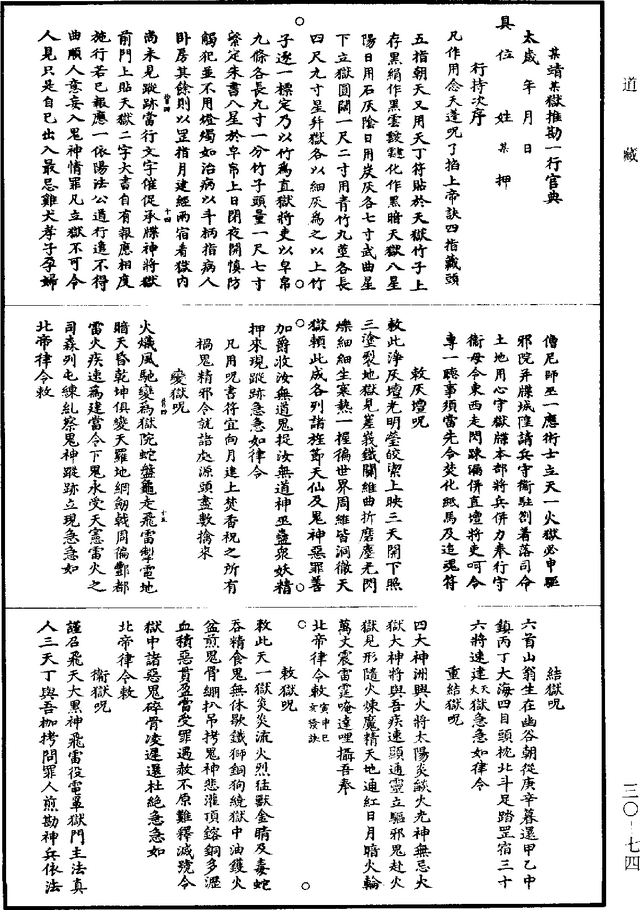 道藏
某靖某獄推勘一行官典
太歲 年 月 日
具 位 姓 某 押
行持次序
凡作用念天蓬呪了掐上帝訣四指藏頭
五指朝天又用天丁符貼於天獄竹子上
存黑絹作黑雲靉靆化作黑暗天獄八星
陽日用石灰陰日用炭灰各七寸武曲星
下立獄圓闊一尺二寸用青竹九莖各長
四尺九寸星幷獄各以細灰為之以上竹
子逐一標定乃以竹為直獄將吏以皁帛
九條各長九寸一分竹子頭量一尺七寸
繫定朱書八星於皁帛上日閉夜開慎防
觸犯並不用燈燭如治病以斗柄指病人
卧房其餘則以罡指月建經兩宿看獄內
尚未見蹤跡當行文字催促承牒神將獄
前門上貼天獄二字大書自有報應相度
施行若已報應一依陽法公道行遣不得
曲順人意妄入鬼神情罪凡立獄不可令
人見只是自已出入最忌雞犬孝子孕婦
僧尼師巫一應術士立天一火獄必申驅
邪院并牒城隍請兵守衛駐劄着落司命
土地用心守獄牒本部將兵併力奉行守
衛毋令東西走閃踈漏併直壇將吏呵令
專一聴事須當先令焚化紙馬及追魂符
敕灰壇呪
敕此淨灰壇光明瑩皎潔上映三天開下照
三塗裂地獄見嵳峩鐵關維曲折磨塵光閃
爍細細生寒熱一握徧世界周維皆洞徹天
獄頼此成各列諸旌節天仙及鬼神惡罪善
加爵收汝無道鬼捉汝無道神巫蠱衆妖精
押來現蹤跡急急如律令
凡用呪書符宜向月建上焚香祝之所有
禍鬼精邪令就詣處源頭盡數擒來
變獄呪
火熾風馳變為獄院蛇盤龜走飛雷掣電地
暗天昏乾坤俱變天羅地網劒戟周徧酆都
雷火疾速為建當令下鬼永受天憲雷火之
司森列屯練糺察鬼神蹤跡立現急急如
北帝律令敕
結獄呪
六首山翁生在幽谷朝從庚辛暮還甲乙中
鎮丙丁大海四目頭枕北斗足踏罡宿三十
六將速達天火獄急急如律令
重結獄呪
四大神洲興火將太陽炎歘火光神無忌大
獄大神將與吾疾速顯通靈立驅邪鬼赴火
獄見形隨火煉魔精天地通紅日月暗火輪
萬丈震雷霆唵達哩攝吾奉
北帝律令敕寅申巳亥發訣
敕獄呪
敕此天一獄炎炎流火烈猛獸金睛及毒蛇
吞精食鬼無休歇鐵獅銅狗繞獄中油鑊火
盆煎鬼骨綳扒吊拷鬼神悲灌頂鎔銅多瀝
血積惡貫盈當受罪遇赦不原難釋滅燒令
獄中諸惡鬼碎骨凌遲還杜絶急急如
北帝律令敕
衛獄呪
謹召飛天大黑神飛雷役電罩獄門主法真
人三天丁與吾枷拷問罪人煎勘神兵依法
三〇-七四